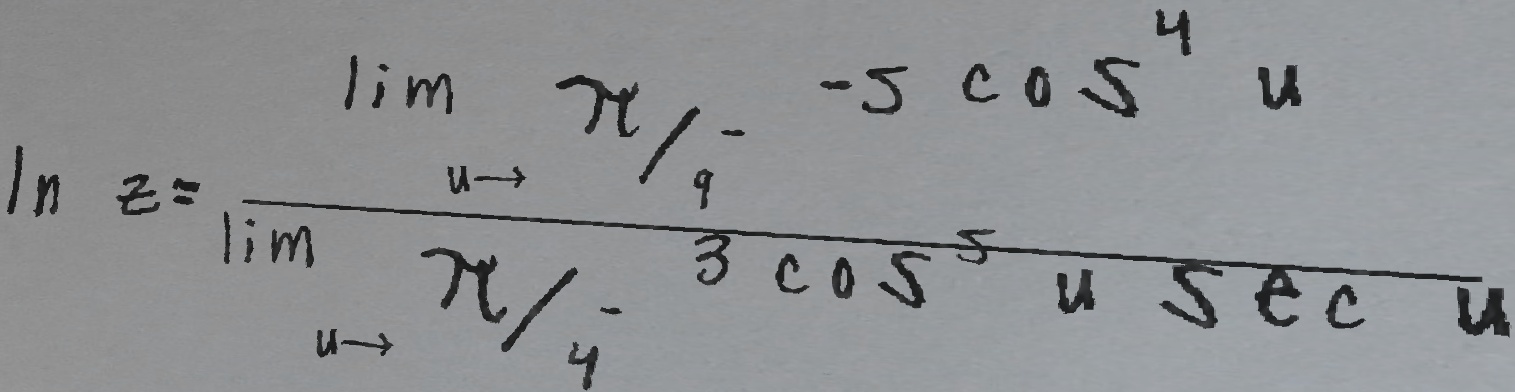 ln z = \frac{\lim_{u \to \pi/9^-} -5 \cos^4 u}{\lim_{u \to \pi/4^-} 3 \cos^5 u \sec u}